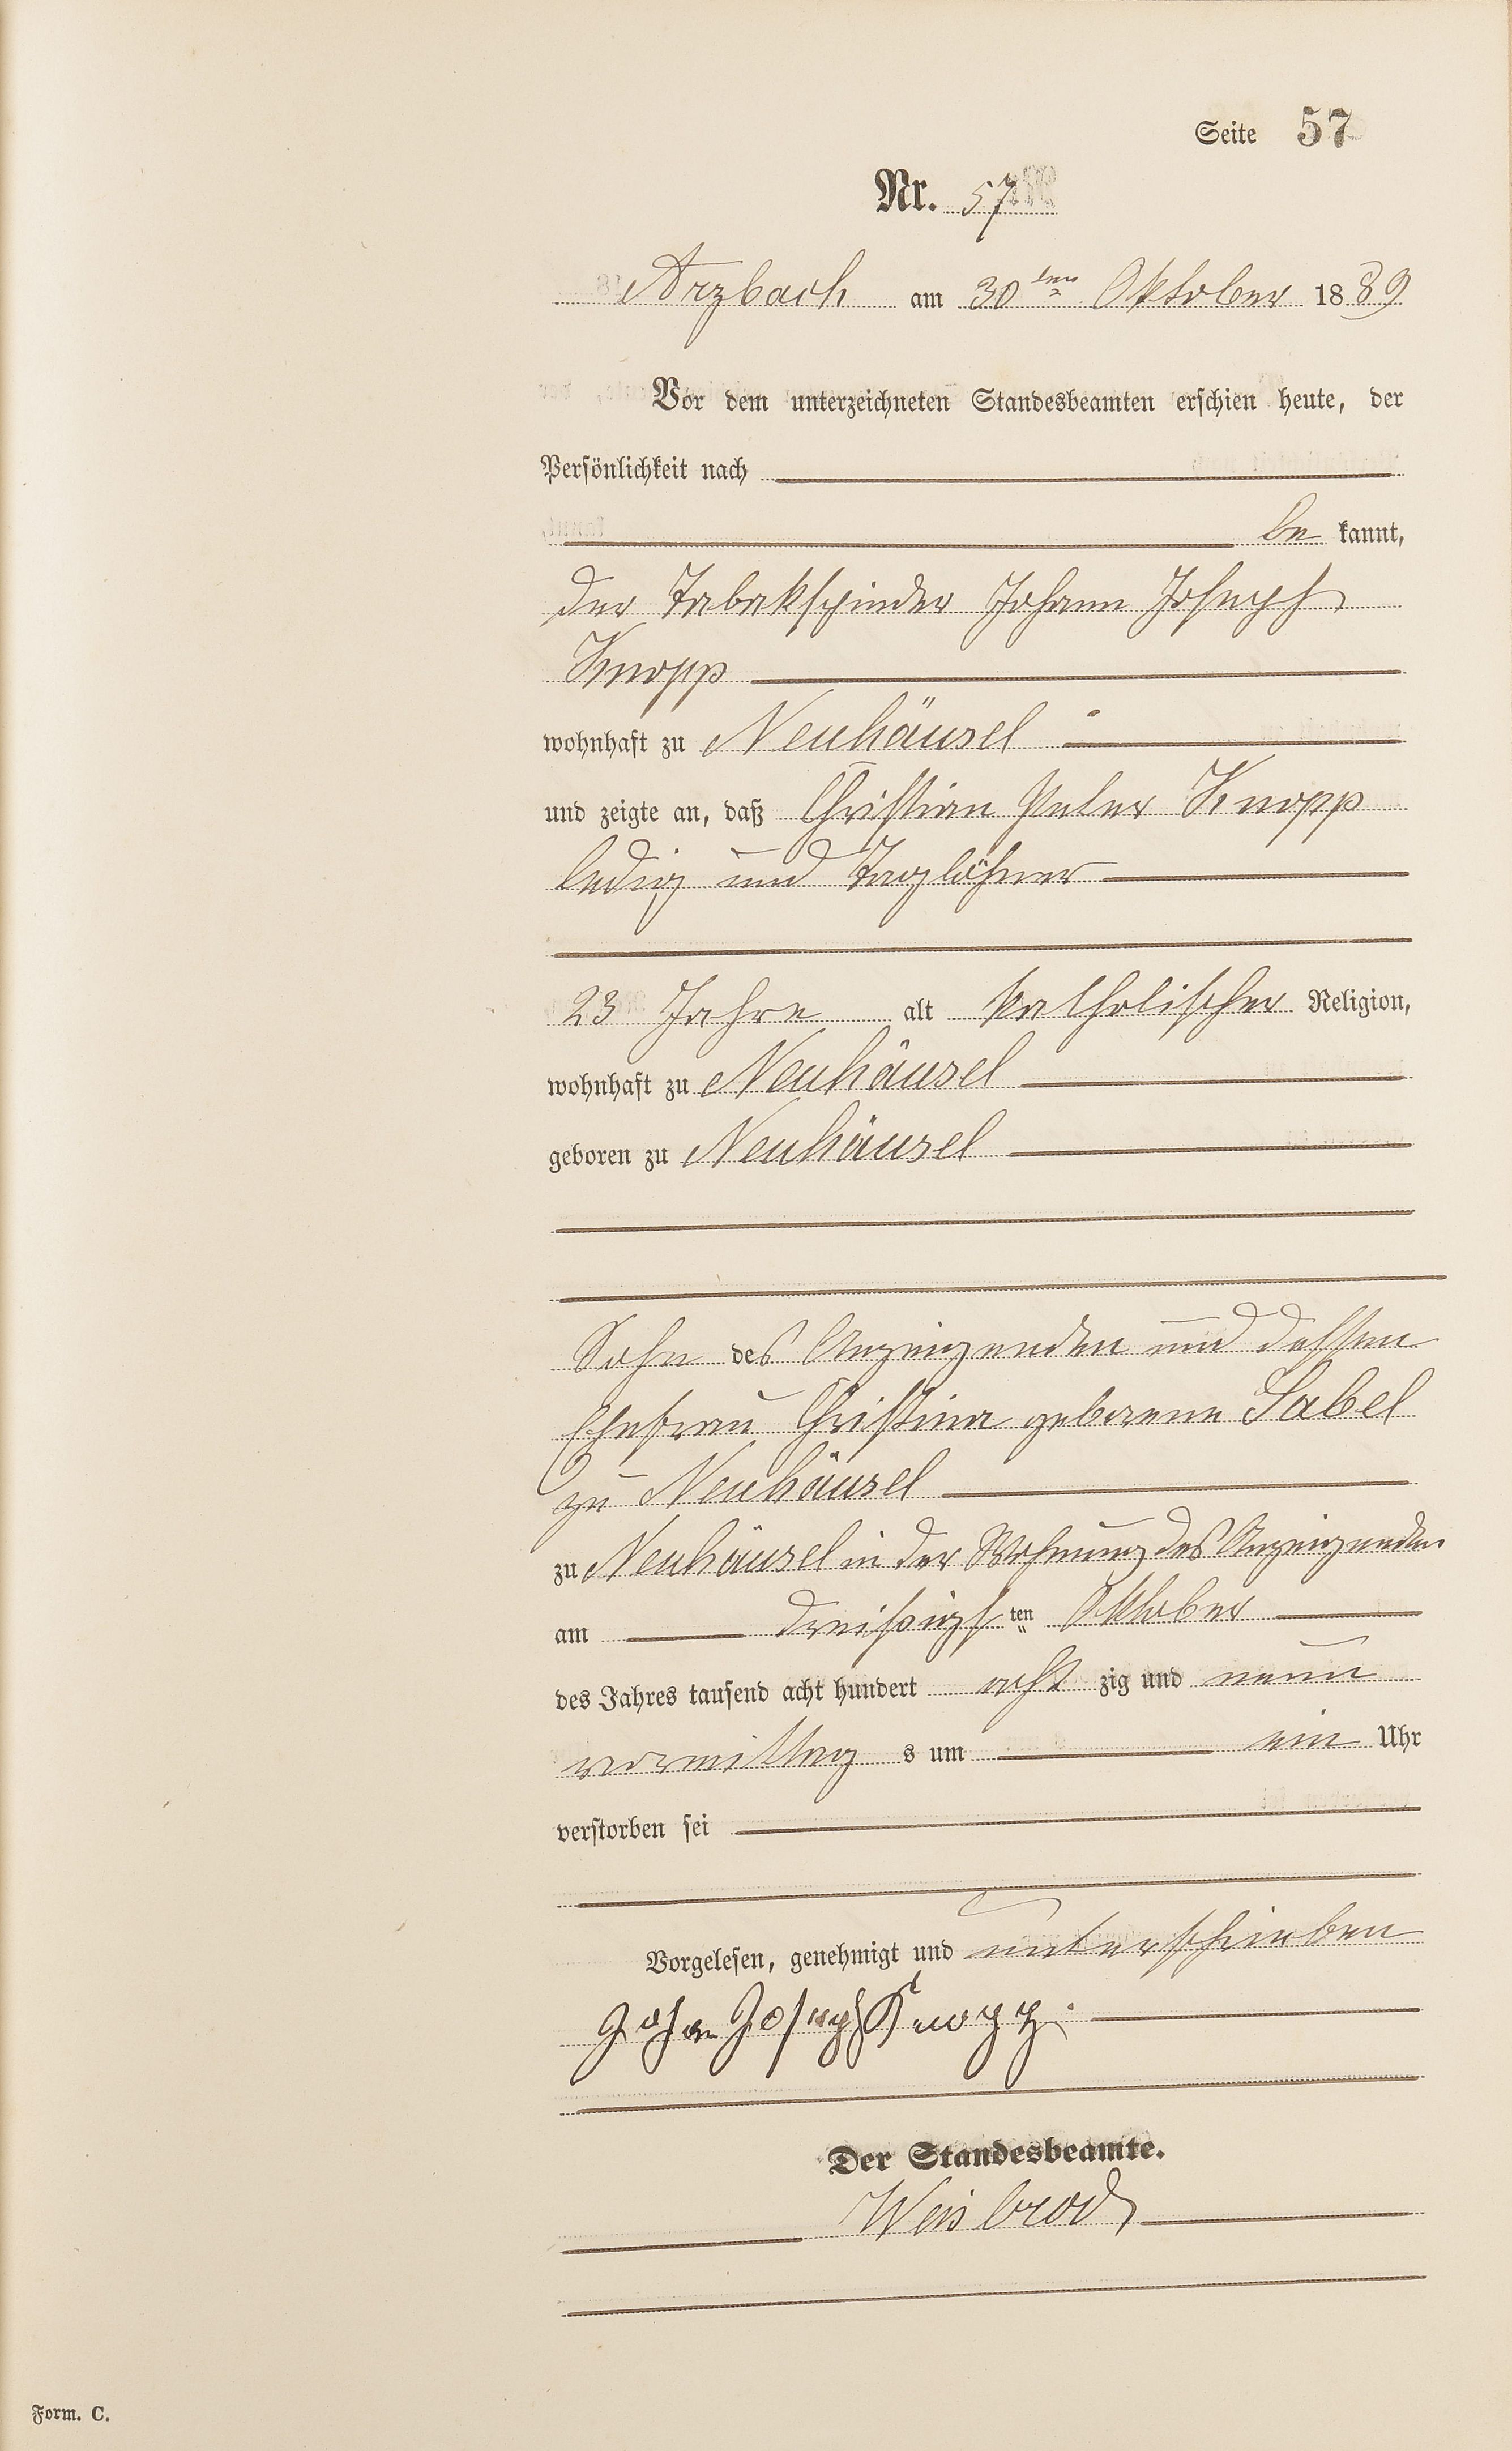 Seite 57
Nr. 57
Arzbach am 30ten Oktober 1889
Vor dem unterzeichneten Standesbeamten erschien heute, der
Persönlichkeit nach
be kannt,
der Johann Joseph
Knopp
wohnhaft zu Neuhäusel
und zeigte an, daß Christian Peter Knopp
ledig und Taglöhner
23 Jahre alt katholischer Religion,
wohnhaft zu Neuhäusel
geboren zu Neuhäusel
Sohn des Anzeigenden und dessen
Ehefrau Christina geborene Sabel
zu Neuhäusel
zu Neuhäusel in der Wohnung des Anzeigenden
am dreißigsten Oktober
des Jahres tausend acht hundert acht zig und neun
vormittag s um ein Uhr
verstorben sei
Vorgelesen, genehmigt und unterschrieben
Johan Joseph Knopp.
Der Standesbeamte.
Weisbrod
Form. C.